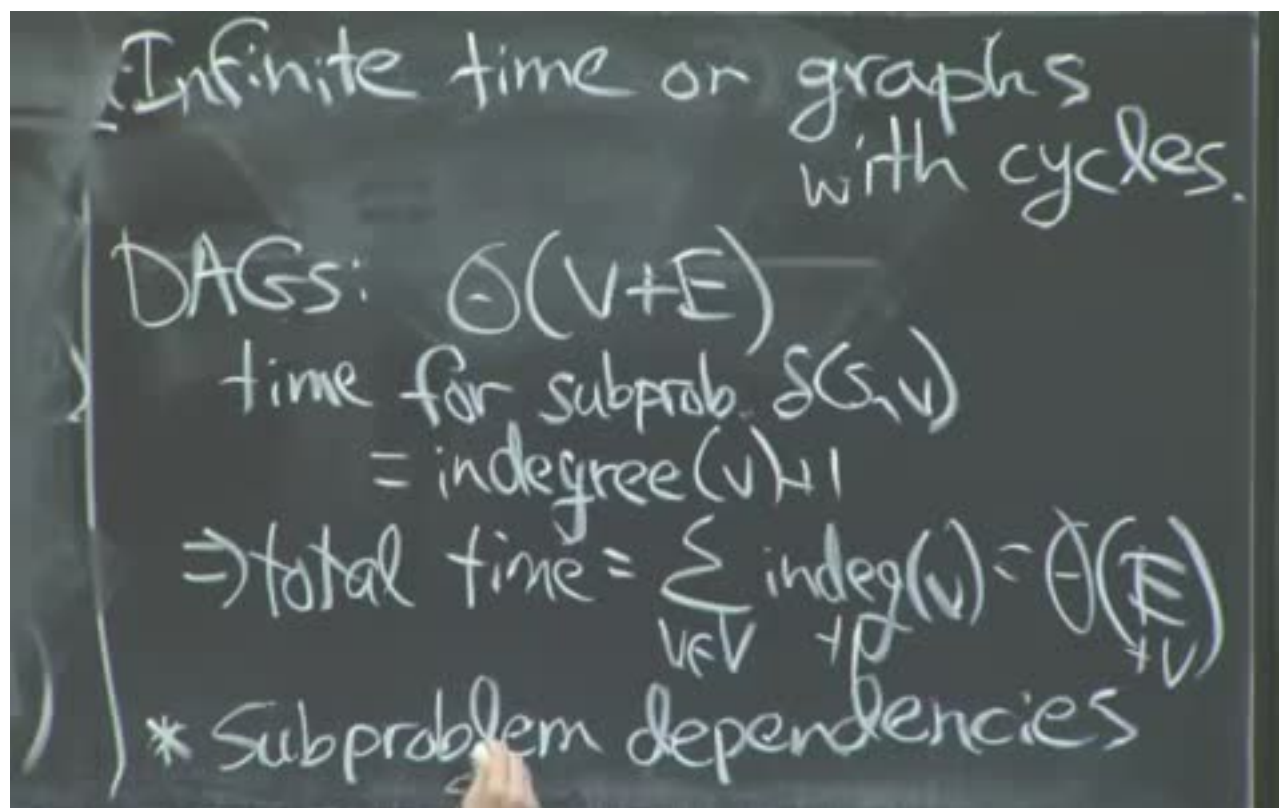 Infinite time on graphs
with cycles.
DAGs: Θ(V+E)
time for subprob. δ(s,v)
= indegree(v)+1
⇒ total time = Σ indeg(v) = Θ(E
v∈V +1 +V)
* Subproblem dependencies